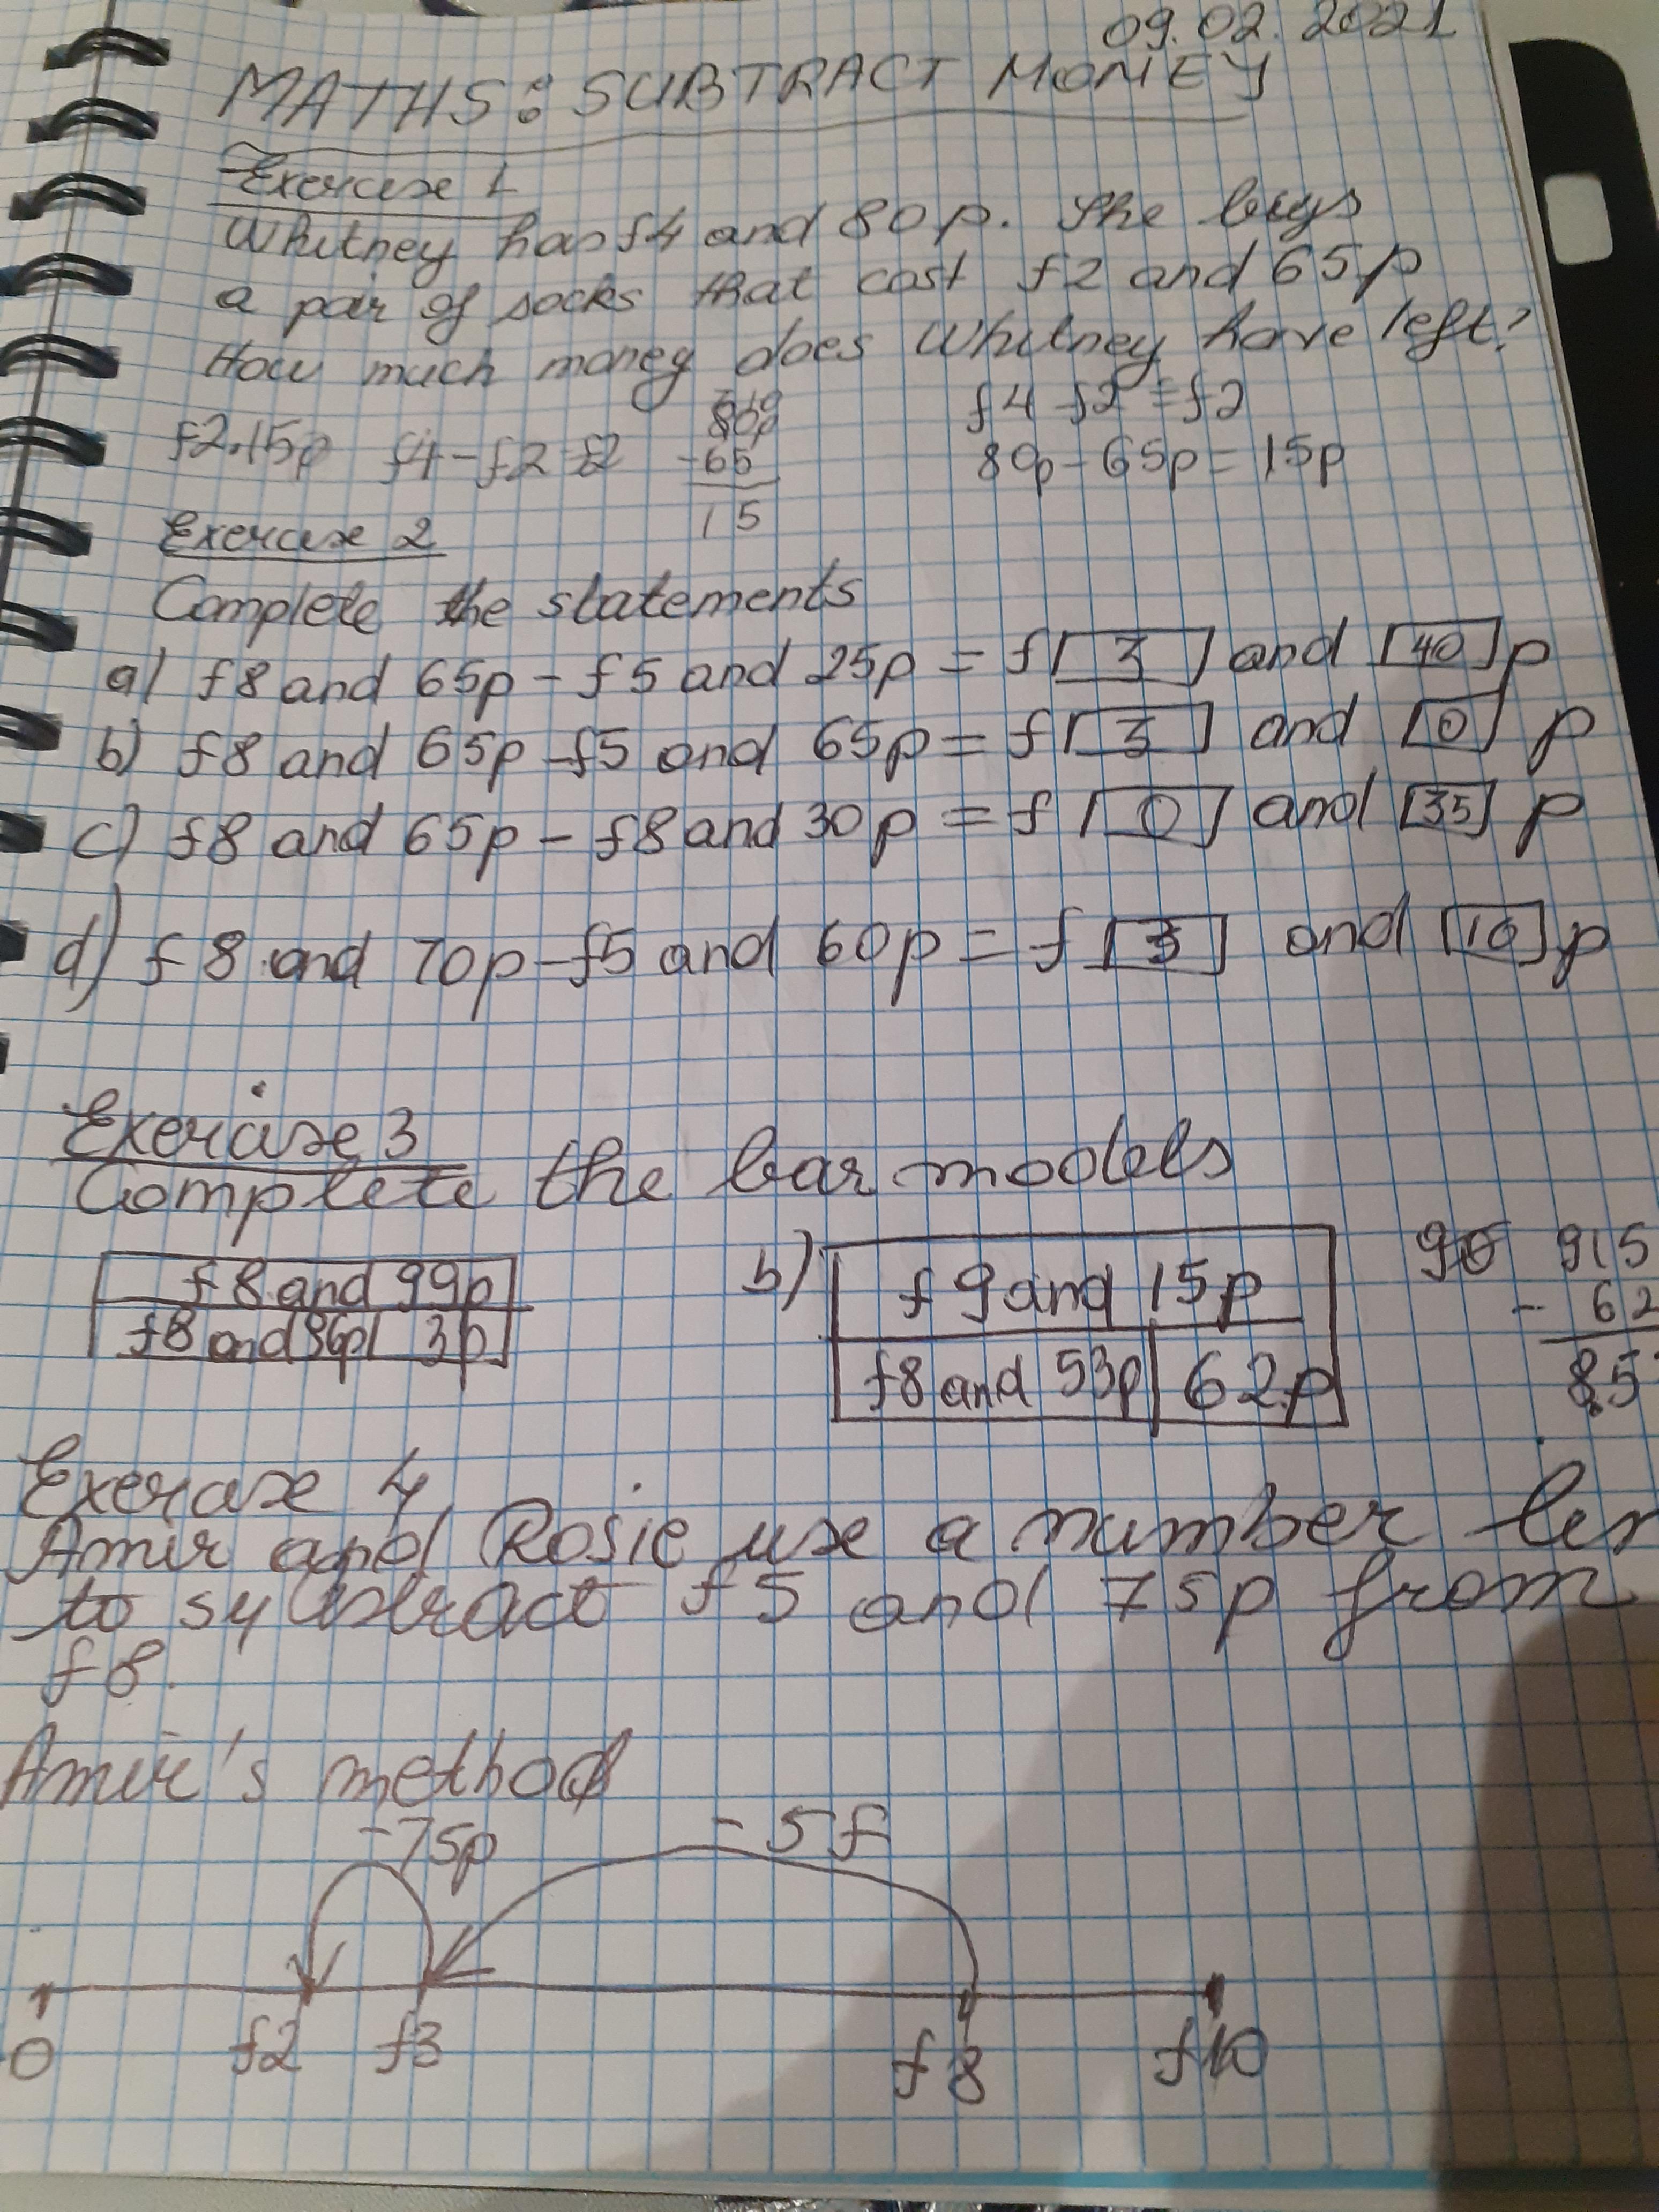 09.02.2021
MATHS: SUBTRACT MONEY
Exercise 1
Whitney has £4 and 80p. She buys
a pair of socks that cost £2 and 65p
How much money does Whitney have left?
£2.15p £4-£2=£2 80p £4-£2=£2
-65 80p-65p=15p
15
Exercise 2
Complete the statements
a) £8 and 65p - £5 and 25p = £[3] and [40]p
b) £8 and 65p - £5 and 65p = £[3] and [0]p
c) £8 and 65p - £8 and 30p = £[0] and [35]p
d) £8 and 70p - £5 and 60p = £[3] and [10]p
Exercise 3
Complete the bar models
£8 and 99p b) £9 and 15p 915
£8 and 96p 3p - 62
£8 and 53p 62p 85
Exercise 4
Amir and Rosie use a number
to substract £5 and 75p from
£8.
Amir's method
-75p -5£
0 £2 £3 £8 £10